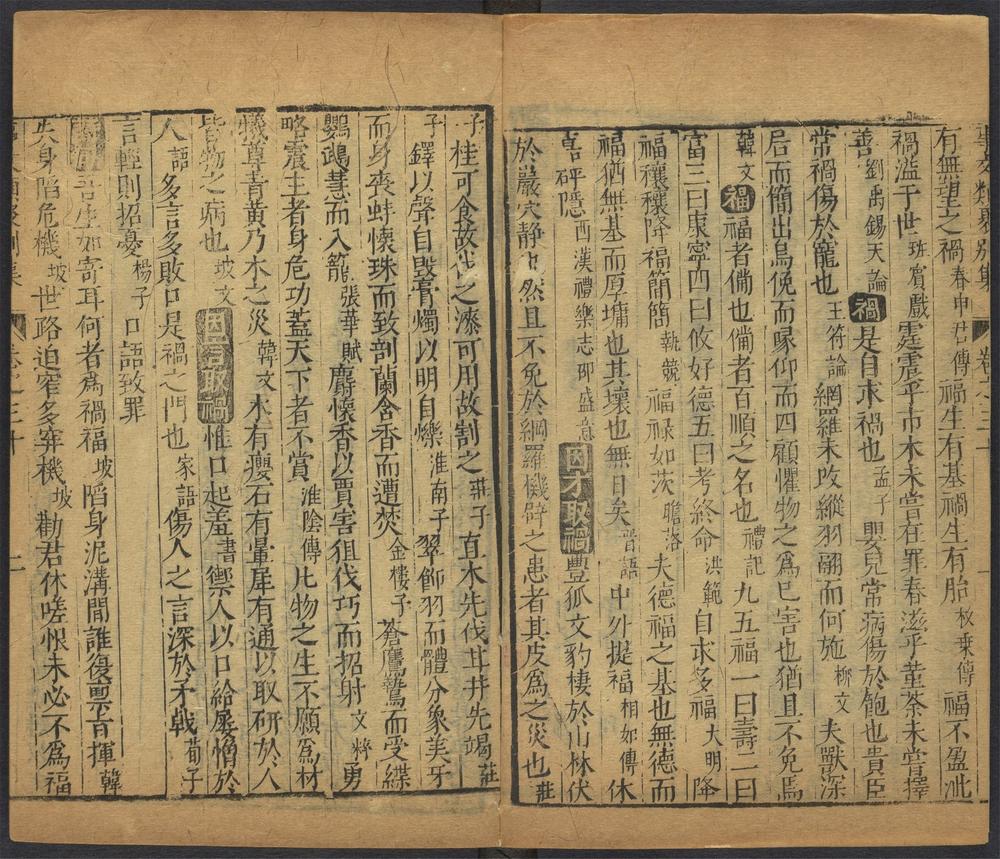 事文類聚別集 卷之三十
有無望之禍春申君傳福生有基禍生有胎枚乘傳福不盈眦
禍溢于世班賓戲霆震乎市木未嘗在罪春滋乎堇荼未嘗擇
善劉禹錫天論禍是自求禍也孟子嬰兒常病傷於飽也貴臣
常禍傷於寵也王符論網羅未改縱羽翮而何施柳文夫獸深
居而簡出鳥俛而啄仰而四顧懼物之爲已害也猶且不免焉
韓文福福者僃也僃者百順之名也禮記九五福一曰壽二曰
富三曰康寧四曰攸好德五曰考終命洪範自求多福大明降
福穰穰降福簡簡執競福禄如茨瞻洛夫德福之基也無德而
福猶無基而厚墉也其壞也無日矣晉語中外提福相如傳休
嘉砰隱西漢禮樂志邵盛意因才取禍豐狐文豹棲於山林伏
於巖穴静也然且不免於網羅機辟之患者其皮爲之災也莊
子桂可食故伐之漆可用故割之莊子直木先伐甘井先竭莊
子鐸以聲自毁膏燭以明自爍淮南子翠飾羽而體分象美牙
而身喪蚌懷珠而致剖蘭含香而遭焚金樓子蒼鷹鷙而受緤
鸚鵡慧而入籠張華賦麝懷香以賈害狙伐巧而招射文粹勇
略震主者身危功蓋天下者不賞淮陰傳凡物之生不願爲材
犧尊青黄乃木之災韓文木有癭石有暈犀有通以取研於人
皆物之病也坡文因言取禍惟口起羞書禦人以口給屢憎於
人語多言多敗口是禍之門也家語傷人之言深於矛戟荀子
言輕則招憂楊子口語致罪
吾生如寄耳何者爲禍福坡陷身泥溝間誰復禀指揮韓
失身陷危機坡世路迫窄多穽機坡勸君休嗟恨未必不爲福